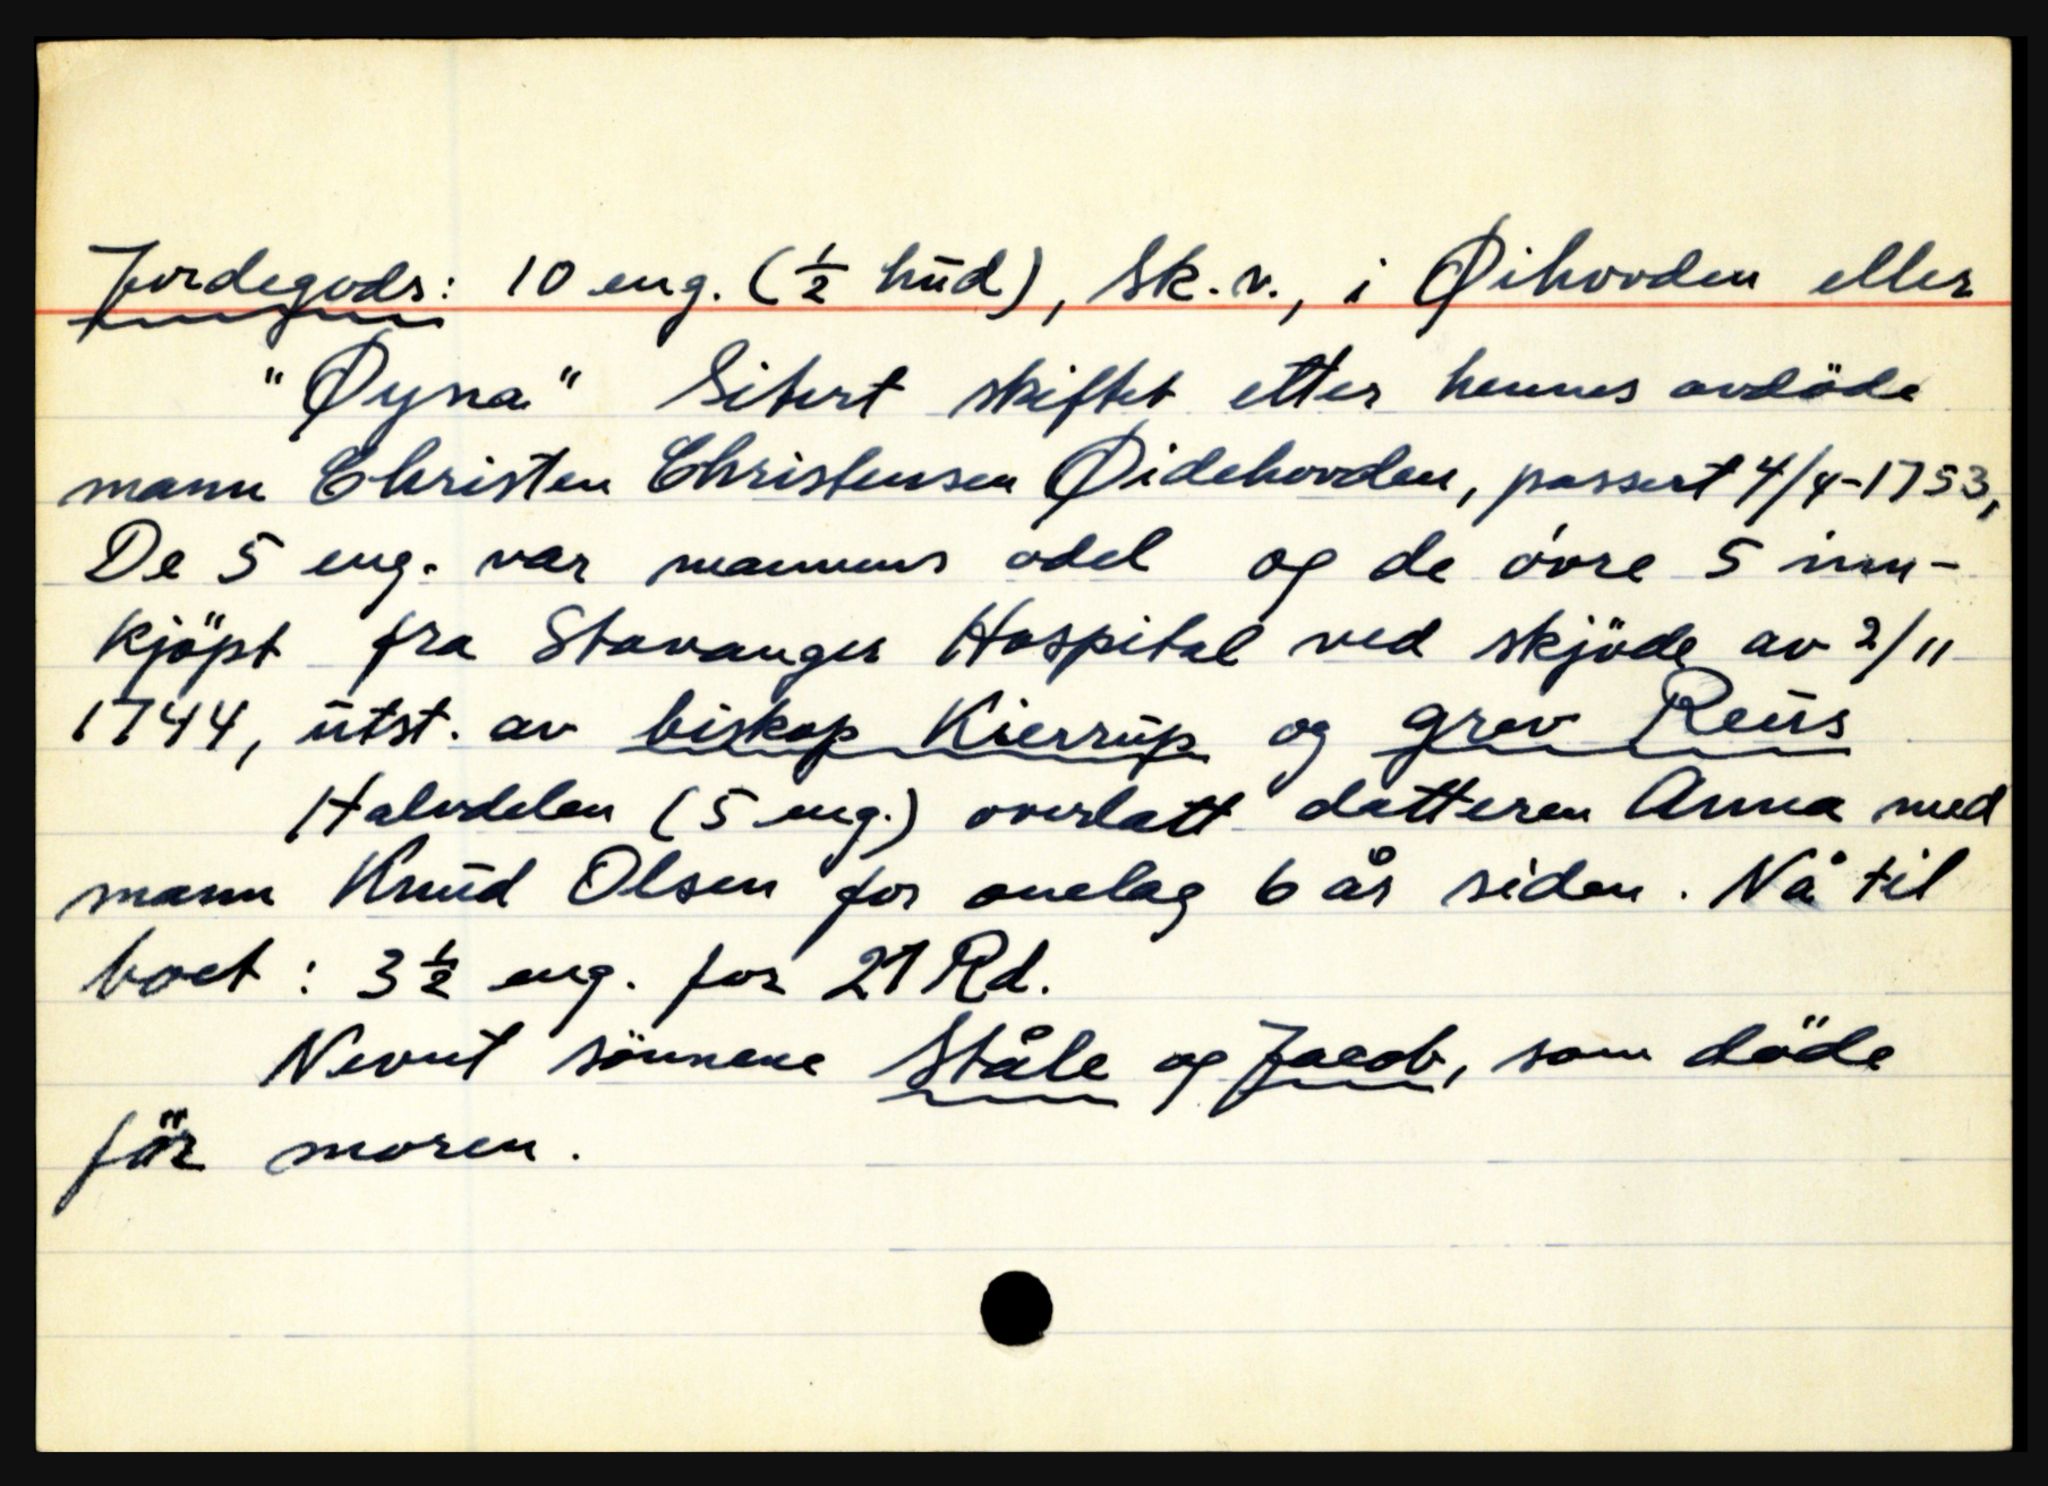 Jordegods: 10 eng. (½ hud), Sk. v., i Øihovden eller
"Øyna" Sitert skiftet etter hennes avdöde
mann Christen Christensen Øidehovden, passert 4/4-1753,
De 5 eng. var mannens odel og de óvre 5 inn-
kjöpt fra Stavanger Hospital ved skjöde av 2/11
1744, utst. av biskop Kierrup og grev Reus
Halvdelen (5 eng.) overlatt datteren Anna med
mann Knud Olsen for omlag 6 år siden. Nå til
boet: 3½ eng. for 21 Rd.
Nevnt sönnene Ståle og Jacob, som döde
för moren.